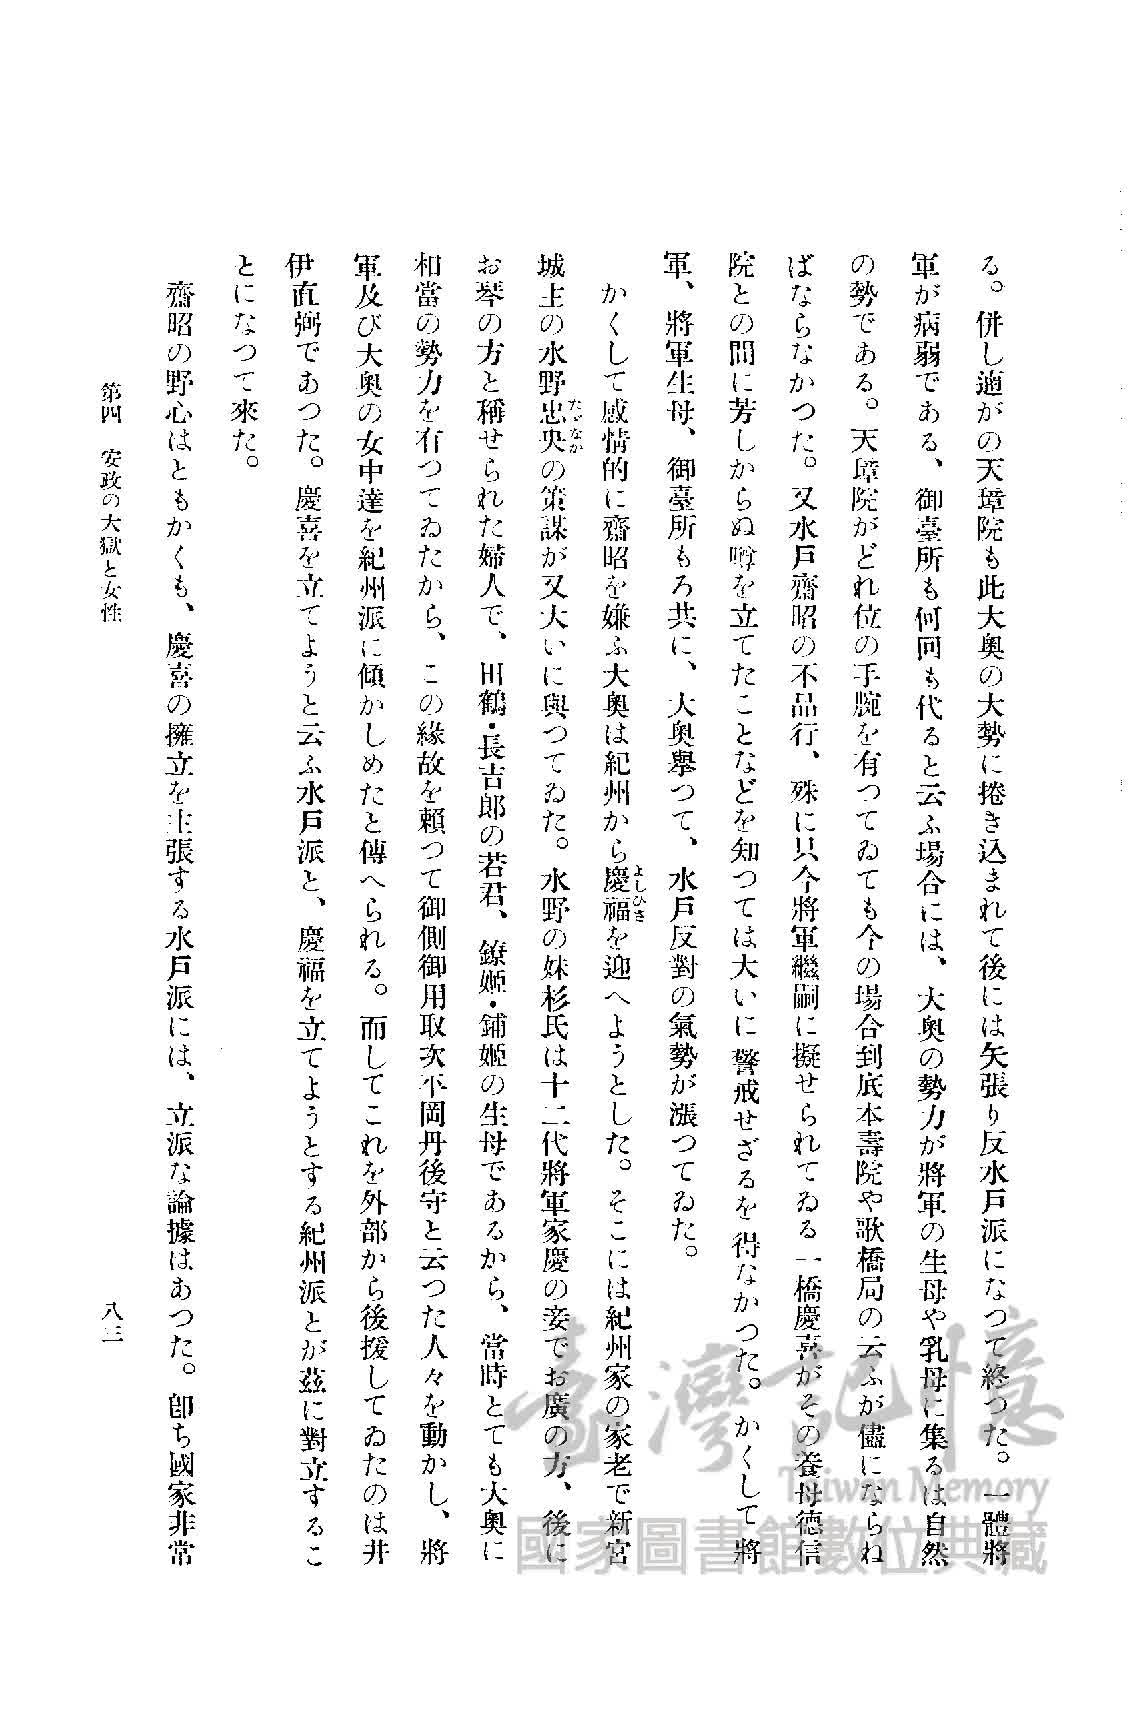 る。併し適がの天璋院も此大奥の大勢に捲き込まれて後には矢張り反水戸派になつて終つた。一體將
軍が病弱である、御臺所も何回も代ると云ふ場合には、大奥の勢力が將軍の生母や乳母に集るは自然
の勢である。天璋院がどれ位の手腕を有つてゐても今の場合到底本壽院や歌橋局の云ふが儘にならね
ばならなかつた。又水戸齋昭の不品行、殊に只今將軍繼嗣に擬せられてゐる一橋慶喜がその養母徳信
院との間に芳しからぬ噂を立てたことなどを知つては大いに警戒せざるを得なかつた。かくして將
軍、將軍生母、御臺所もろ共に、大奥擧つて、水戸反對の氣勢が漲つてゐた。
かくして感情的に齋昭を嫌ふ大奥は紀州から慶福を迎へようとした。そこには紀州家の家老で新宮
よしひさ
城主の水野忠央の策謀が又大いに與つてゐた。水野の妹杉氏は十二代將軍家慶の妾でお廣の方、後に
たゞなか
お琴の方と稱せられた婦人で、田鶴・長吉郎の若君、鐐姬・鋪姬の生母であるから、當時とても大奥に
相當の勢力を有つてゐたから、この緣故を賴つて御側御用取次平岡丹後守と云つた人々を動かし、將
軍及び大奥の女中達を紀州派に傾かしめたと傳へられる。而してこれを外部から後援してゐたのは井
伊直弼であつた。慶喜を立てようと云ふ水戸派と、慶福を立てようとする紀州派とが茲に對立するこ
とになつて來た。
齋昭の野心はともかくも、慶喜の擁立を主張する水戸派には、立派な論據はあつた。卽ち國家非常
第四 安政の大獄と女性
八三
臺灣記憶
Taiwan Memory
國家圖書館數位典藏